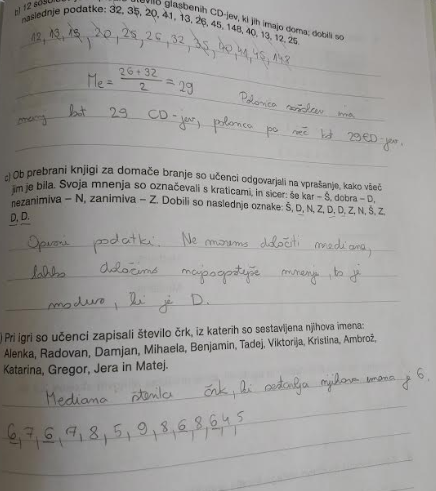 b) 12 število glasbenih CD-jev, ki jih imajo doma; dobili so
naslednje podatke: 32, 35, 20, 41, 13, 26, 45, 148, 40, 13, 12, 25.
12, 13, 13, 20, 25, 26, 32, 35, 40, 41, 45, 148
Me = 26+32 / 2 = 29
Polovica ima
manj kot 29 CD-jev, polovica pa več kot 29 CD-jev.
c) Ob prebrani knjigi za domače branje so učenci odgovarjali na vprašanje, kako všeč
jim je bila. Svoja mnenja so označevali s kraticami, in sicer: še kar – Š, dobra – D,
nezanimiva – N, zanimiva – Z. Dobili so naslednje oznake: Š, D, N, Z, D, D, Z, N, Š, Z,
D, D.
Opisni podatki. Ne moremo določiti mediane,
lahko določimo najpogostejše mnenje, to je
modus, ki je D.
) Pri igri so učenci zapisali število črk, iz katerih so sestavljena njihova imena:
Alenka, Radovan, Damjan, Mihaela, Benjamin, Tadej, Viktorija, Kristina, Ambrož,
Katarina, Gregor, Jera in Matej.
Mediana števila črk, ki sestavlja njihova imena je 6.
6, 7, 6, 7, 8, 5, 9, 8, 6, 8, 6, 4, 5